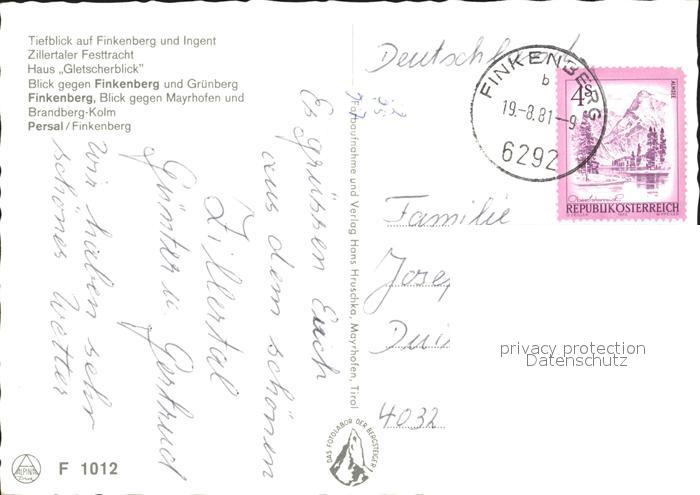 Tiefblick auf Finkenberg und Ingent
Zillertaler Festtracht
Haus „Gletscherblick"
Blick gegen Finkenberg und Grünberg
Finkenberg, Blick gegen Mayrhofen und
Brandberg-Kolm
Persal/Finkenberg
Es grüssen Euch
aus dem schönen
Zillertal
Günter u. Gertrud
Wir haben sehr
schönes Wetter
ALPINA
F 1012
Farbaufnahme und Verlag Hans Hruschka, Mayrhofen, Tirol
DAS FOTOLABOR DER BERGSTEIGER!
Deutschland
FINKENBERG
b
19.-8.81-9
6292
4 S
ALMSEE
Oberösterreich
REPUBLIK ÖSTERREICH
Familie
Josep
Dui
4032
privacy protection
Datenschutz